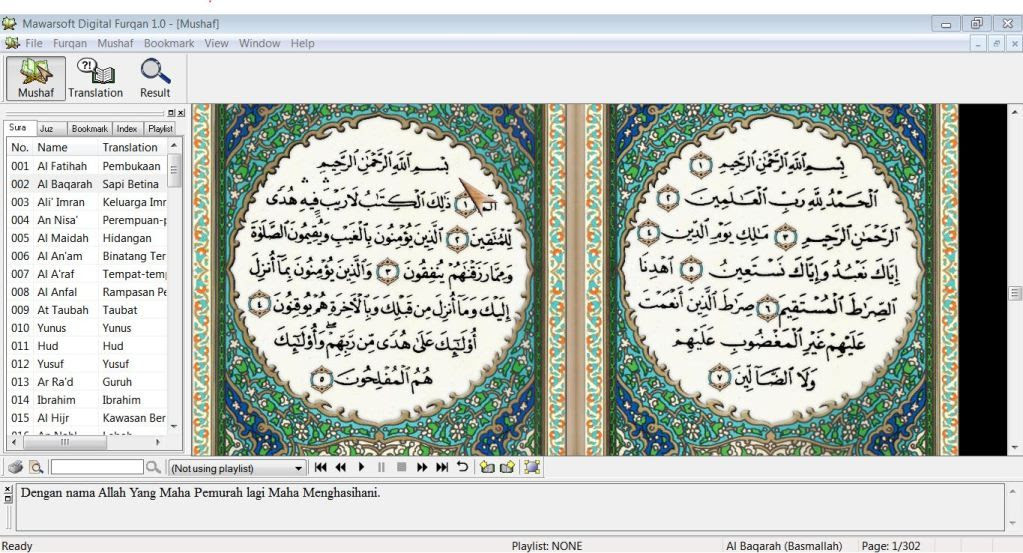 Mawarsoft Digital Furqan 1.0 - [Mushaf]
File Furqan Mushaf Bookmark View Window Help
Mushaf Translation Result
Sura Juz Bookmark Index Playlist
No. Name Translation
001 Al Fatihah Pembukaan
002 Al Baqarah Sapi Betina
003 Ali' Imran Keluarga Imr
004 An Nisa' Perempuan-p
005 Al Maidah Hidangan
006 Al An'am Binatang Ter
007 Al A'raf Tempat-temp
008 Al Anfal Rampasan Pe
009 At Taubah Taubat
010 Yunus Yunus
011 Hud Hud
012 Yusuf Yusuf
013 Ar Ra'd Guruh
014 Ibrahim Ibrahim
015 Al Hijr Kawasan Ber
بِسْمِ اللَّهِ الرَّحْمَٰنِ الرَّحِيمِ ١
الْحَمْدُ لِلَّهِ رَبِّ الْعَٰلَمِينَ ٢
الرَّحْمَٰنِ الرَّحِيمِ ٣ مَٰلِكِ يَوْمِ الدِّينِ ٤
إِيَّاكَ نَعْبُدُ وَإِيَّاكَ نَسْتَعِينُ ٥ اهْدِنَا
الصِّرَٰطَ الْمُسْتَقِيمَ ٦ صِرَٰطَ الَّذِينَ أَنْعَمْتَ
عَلَيْهِمْ غَيْرِ الْمَغْضُوبِ عَلَيْهِمْ
وَلَا الضَّآلِّينَ ٧
بِسْمِ اللَّهِ الرَّحْمَٰنِ الرَّحِيمِ
الٓمٓ ١ ذَٰلِكَ الْكِتَٰبُ لَا رَيْبَ ۛ فِيهِ ۛ هُدًى
لِّلْمُتَّقِينَ ٢ الَّذِينَ يُؤْمِنُونَ بِالْغَيْبِ وَيُقِيمُونَ الصَّلَوٰةَ
وَمِمَّا رَزَقْنَٰهُمْ يُنفِقُونَ ٣ وَالَّذِينَ يُؤْمِنُونَ بِمَآ أُنزِلَ
إِلَيْكَ وَمَآ أُنزِلَ مِن قَبْلِكَ وَبِالْأَخِرَةِ هُمْ يُوقِنُونَ ٤
أُوْلَٰٓئِكَ عَلَىٰ هُدًى مِّن رَّبِّهِمْ ۖ وَأُوْلَٰٓئِكَ
هُمُ الْمُفْلِحُونَ ٥
(Not using playlist)
Dengan nama Allah Yang Maha Pemurah lagi Maha Menghasihani.
Ready Playlist: NONE Al Baqarah (Basmallah) Page: 1/302